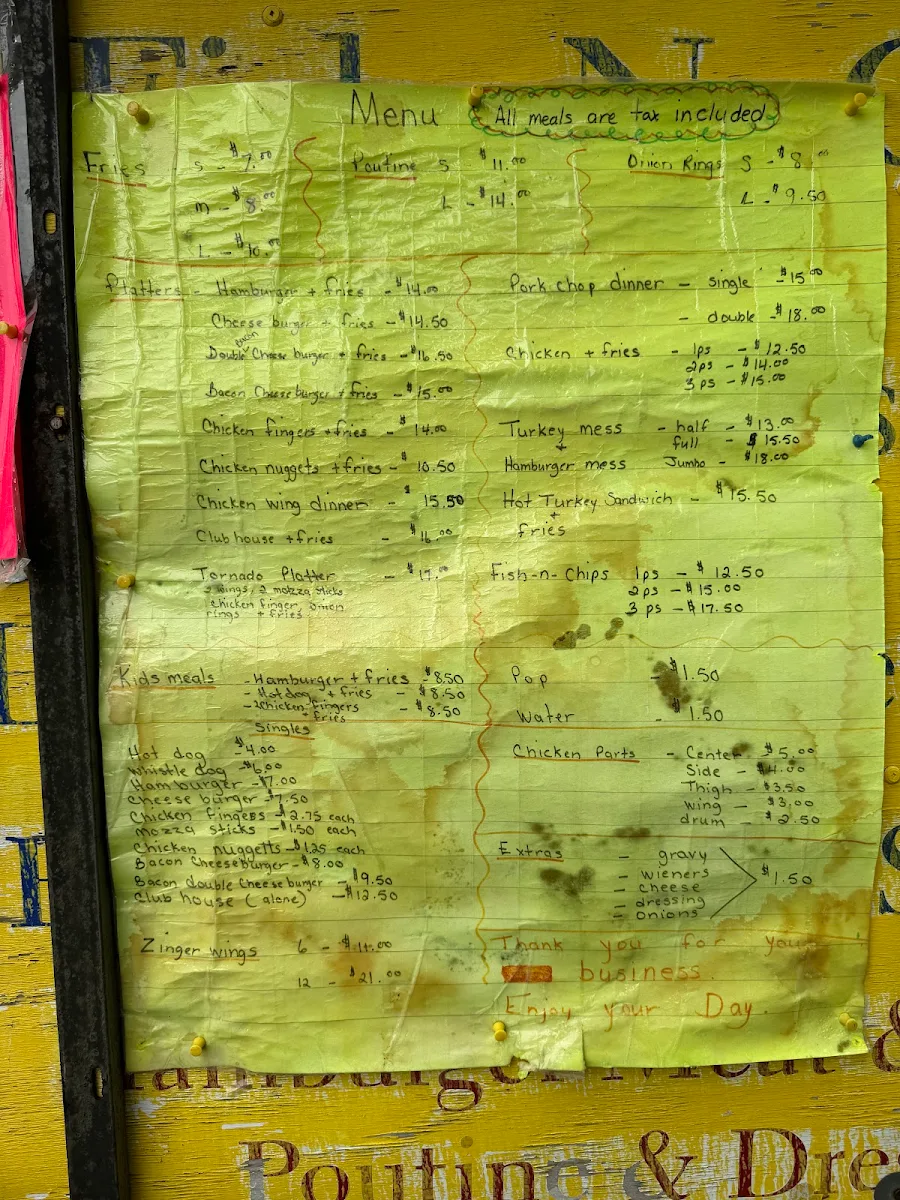 Menu
All meals are tax included
Fries S - $7.00
m - $8.00
L - $10.00
Poutine S $11.00
L - $14.00
Onion Rings S - $8.00
L - $9.50
Platters - Hamburger + fries - $14.00
Cheese burger + fries - $14.50
Double Bacon Cheese burger + fries - $16.50
Bacon Cheeseburger + fries - $15.00
Chicken fingers + fries - $14.00
Chicken nuggets + fries - $10.50
Chicken wing dinner - $15.50
Club house + fries - $16.00
Tornado Platter - $17.00
2 wings, 2 mozza sticks
chicken finger, onion
rings + fries
Pork chop dinner - single - $15.00
- double - $18.00
Chicken + fries - 1ps - $12.50
2ps - $14.00
3 ps - $15.00
Turkey mess - half - $13.00
+ full - $15.50
Hamburger mess Jumbo - $18.00
Hot Turkey Sandwich - $15.50
+
fries
Fish-n-Chips 1ps - $12.50
2ps - $15.00
3 ps - $17.50
Kids meals - Hamburger + fries - $8.50
- Hotdog + fries - $8.50
- 2chicken fingers - $8.50
+ fries
Singles
Hot dog - $4.00
whistle dog - $6.00
Hamburger - $7.00
cheese burger - $7.50
Chicken fingers - $2.75 each
mozza sticks - $1.50 each
Chicken nuggetts - $1.25 each
Bacon Cheeseburger - $8.00
Bacon double Cheese burger - $9.50
Club house (alone) - $12.50
Zinger wings 6 - $11.00
12 - $21.00
Pop - $1.50
Water - $1.50
Chicken Parts - Center - $5.00
Side - $4.00
Thigh - $3.50
wing - $3.00
drum - $2.50
Extras - gravy
- wieners
- cheese $1.50
- dressing
- onions
Thank you for your
business.
Enjoy your Day.
Hamburger Meat &
Poutine & Dre